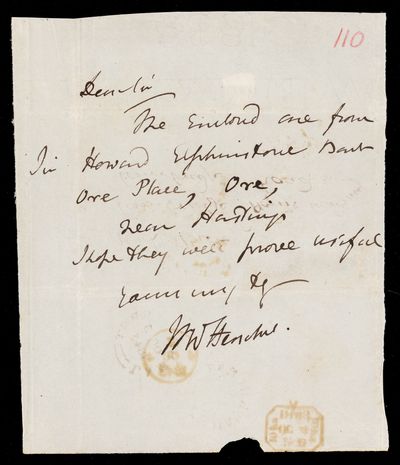 110
Dear Sir
The Enclosed are from
Sir Howard Elphinstone Bart
Ore Place, Ore,
near Hastings
I hope they will prove useful
yours very try
JFW Herschel.